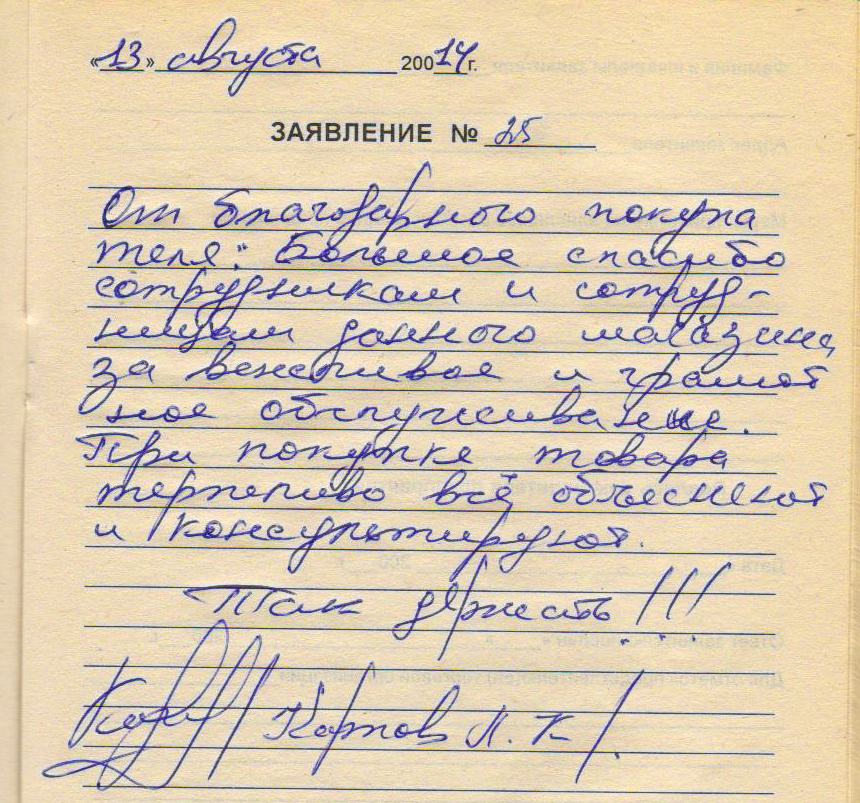 «13» августа 20014г.
ЗАЯВЛЕНИЕ № 25
От благодарного покупа
теля: Большое спасибо
сотрудникам и сотруд-
ницам данного магазина
за вежливое и грамот
ное обслуживание.
При покупке товара
терпеливо всё объеснеют
и консультируют.
Так держать!!!
Карпов Л. К.